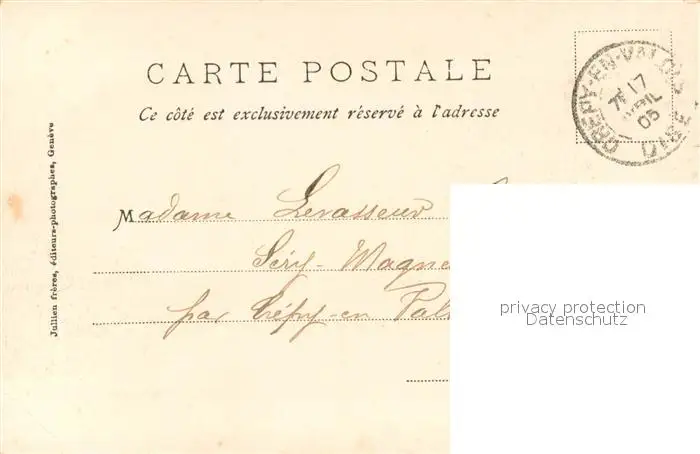 CARTE POSTALE
Ce côté est exclusivement réservé à l'adresse
CREPY-EN-VALOIS
17
AVRIL
05
OISE
Jullien frères, éditeurs-photographes, Genève
Madame Levasseur
Séry-Magne
par Crépy-en Val
privacy protection
Datenschutz